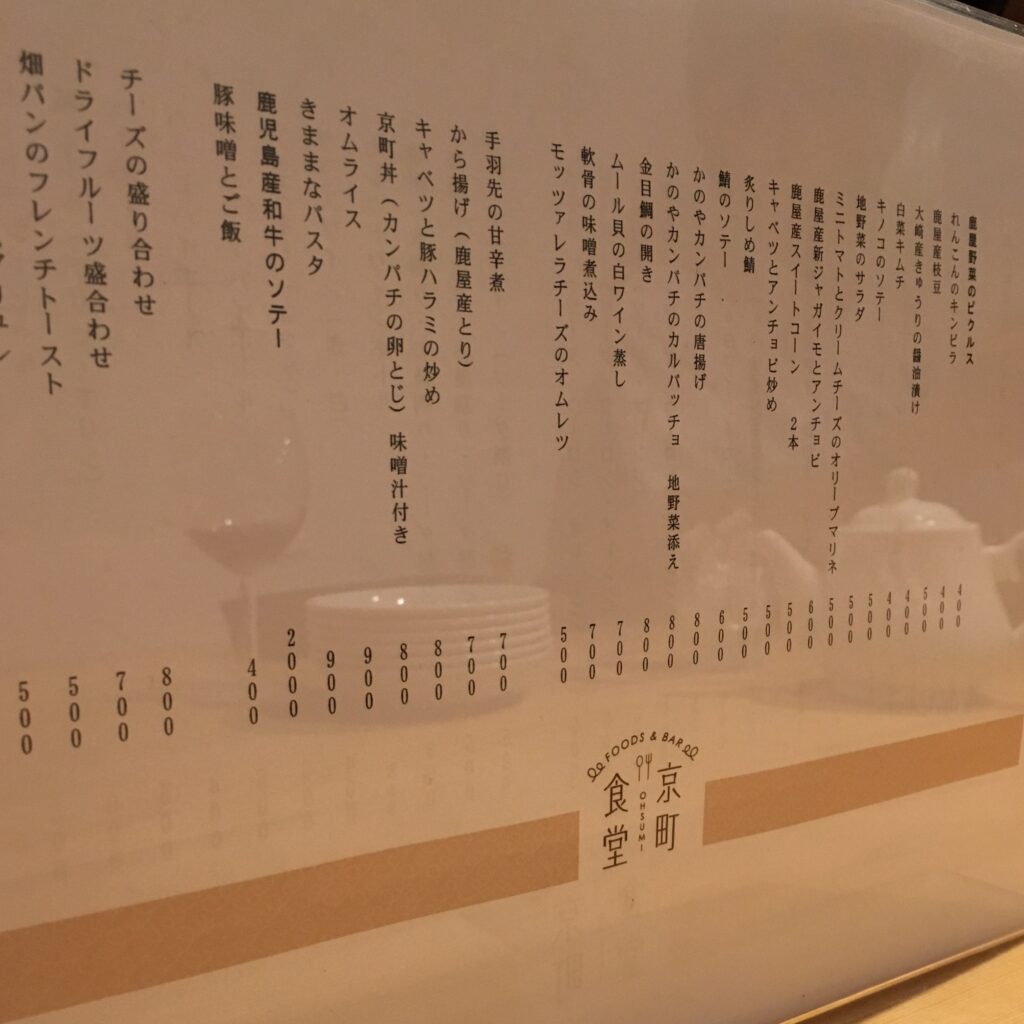 鹿屋野菜のピクルス 400
れんこんのキンピラ 400
鹿屋産枝豆 500
大崎産きゅうりの醤油漬け 400
白菜キムチ 400
キノコのソテー 500
地野菜のサラダ 500
ミニトマトとクリームチーズのオリーブマリネ 500
鹿屋産新ジャガイモとアンチョビ 600
鹿屋産スイートコーン 2本 500
キャベツとアンチョビ炒め 500
炙りしめ鯖 500
鯖のソテー 600
かのやカンパチの唐揚げ 800
かのやカンパチのカルパッチョ 地野菜添え 800
金目鯛の開き 800
ムール貝の白ワイン蒸し 700
軟骨の味噌煮込み 700
モッツァレラチーズのオムレツ 500
手羽先の甘辛煮 700
から揚げ（鹿屋産とり） 700
キャベツと豚ハラミの炒め 800
京町丼（カンパチの卵とじ）味噌汁付き 800
オムライス 900
きままなパスタ 900
鹿児島産和牛のソテー 2000
豚味噌とご飯 400
チーズの盛り合わせ 800
ドライフルーツ盛合わせ 700
畑パンのフレンチトースト 500
500
FOODS & BAR
京町
OHSUMI
食堂